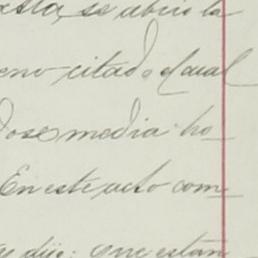 esta, se abrio la
eno citado, el cual
dose media ho
En este acto com
dijo: que están